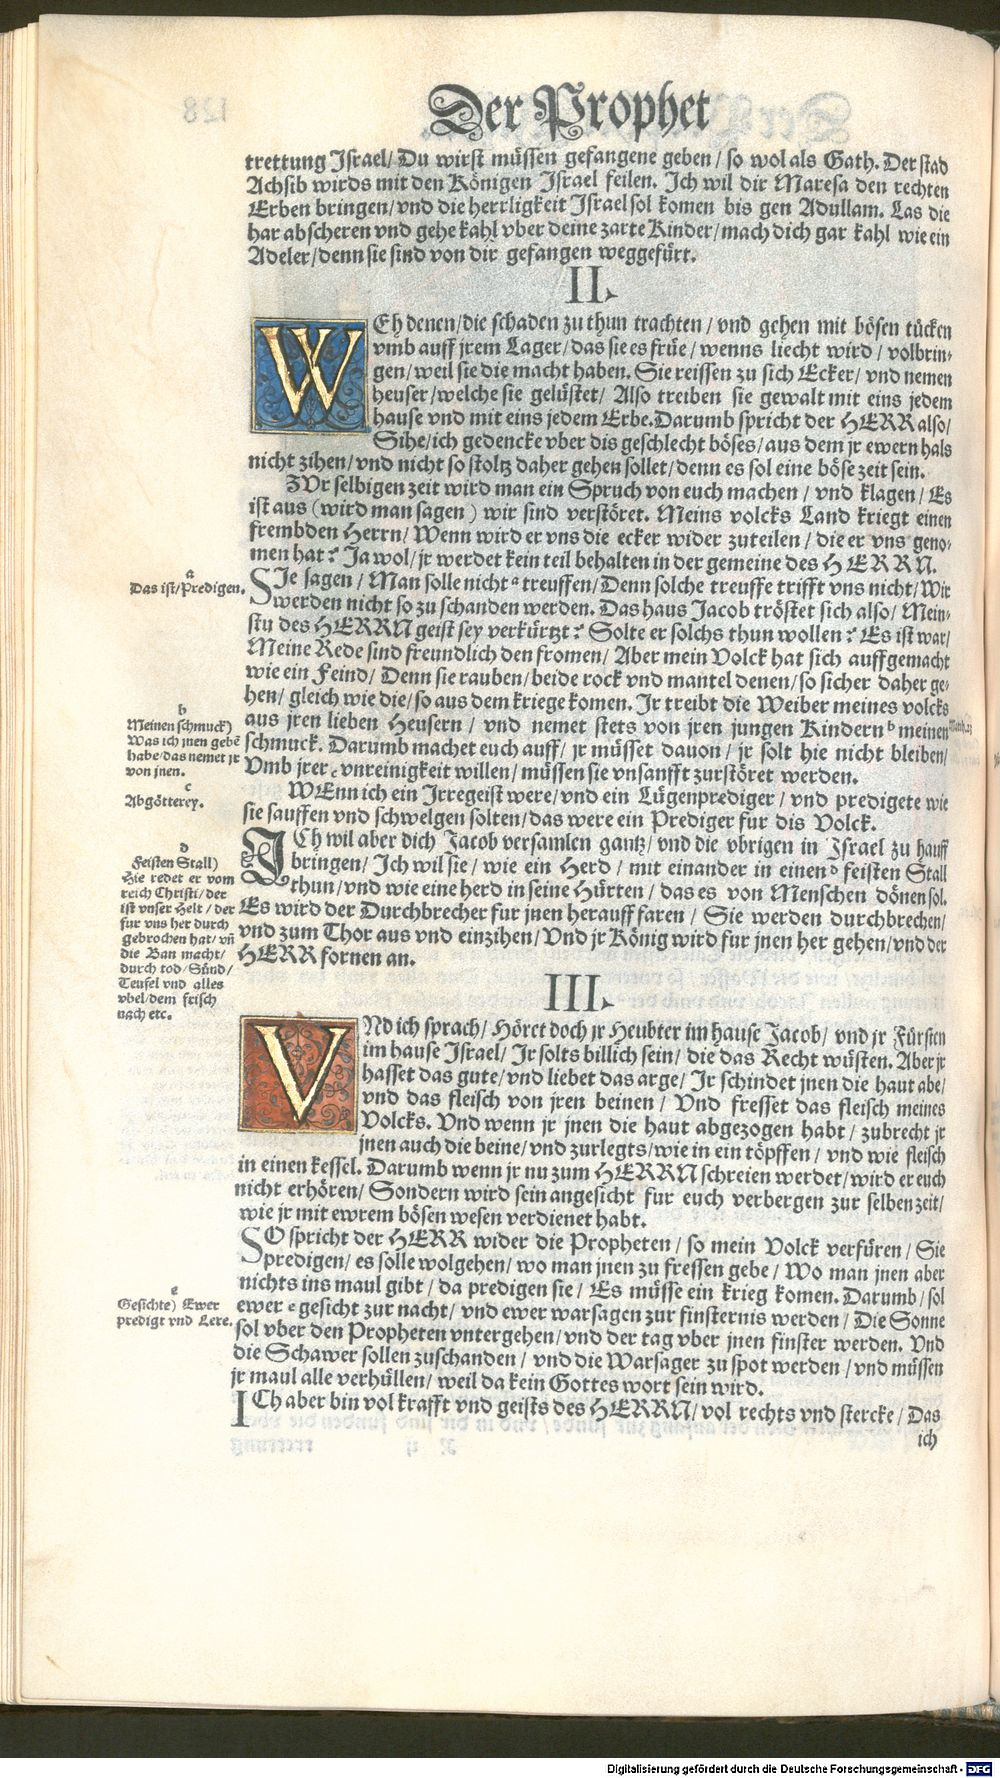 Der Prophet
trettung Jsrael/ Du wirst müssen gefangene geben/ so wol als Gath. Der stad
Achsib wirds mit den Königen Jsrael feilen. Jch wil dir Maresa den rechten
Erben bringen/ vnd die herrligkeit Jsrael sol komen bis gen Adullam. Las die
har abscheren vnd gehe kahl vber deine zarte Kinder/ mach dich gar kahl wie ein
Adeler/ denn sie sind von dir gefangen weggefürt.
II.
WEh denen/ die schaden zu thun trachten/ vnd gehen mit bösen tücken
vmb auff jrem Lager/ das sie es früe/ wenns liecht wird/ volbrin-
gen/ weil sie die macht haben. Sie reissen zu sich Ecker/ vnd nemen
heuser/ welche sie gelüstet/ Also treiben sie gewalt mit eins jedem
hause vnd mit eins jedem Erbe. Darumb spricht der HERR also/
Sihe/ ich gedencke vber dis geschlecht böses/ aus dem jr ewern hals
nicht zihen/ vnd nicht so stoltz daher gehen sollet/ denn es sol eine böse zeit sein.
ZVr selbigen zeit wird man ein Spruch von euch machen/ vnd klagen/ Es
ist aus (wird man sagen) wir sind verstöret. Meins volcks Land kriegt einen
frembden Herrn/ Wenn wird er vns die ecker wider zuteilen/ die er vns geno-
men hat? Ja wol/ jr werdet kein teil behalten in der gemeine des HERRN.
a
Das ist/ Predigen.
SJe sagen/ Man solle nicht a treuffen/ Denn solche treuffe trifft vns nicht/ Wir
werden nicht so zu schanden werden. Das haus Jacob tröstet sich also/ Mein-
stu des HERRN geist sey verkürtzt? Solte er solchs thun wollen? Es ist war/
Meine Rede sind freundlich den fromen/ Aber mein Volck hat sich auffgemacht
wie ein Feind/ Denn sie rauben/ beide rock vnd mantel denen/ so sicher daher ge-
hen/ gleich wie die/ so aus dem kriege komen. Jr treibt die Weiber meines volcks
aus jren lieben Heusern/ vnd nemet stets von jren jungen Kindern b meinen
schmuck. Darumb machet euch auff/ jr müsset dauon/ jr solt hie nicht bleiben/
Vmb jrer c vnreinigkeit willen/ müssen sie vnsanfft zurstöret werden.
b
Meinen schmuck)
Was ich jnen gebẽ
habe/ das nemet jr
von jnen.
c
Abgötterey.
WEnn ich ein Jrregeist were/ vnd ein Lügenprediger/ vnd predigete wie
sie sauffen vnd schwelgen solten/ das were ein Prediger fur dis Volck.
JCh wil aber dich Jacob versamlen gantz/ vnd die vbrigen in Jsrael zu hauff
bringen/ Jch wil sie/ wie ein Herd/ mit einander in einen d feisten Stall
thun/ vnd wie eine herd in seine Hürten/ das es von Menschen dönen sol.
Es wird der Durchbrecher fur jnen herauff faren/ Sie werden durchbrechen/
vnd zum Thor aus vnd einzihen/ Vnd jr König wird fur jnen her gehen/ vnd der
HERR fornen an.
d
Feisten Stall)
Hie redet er vom
reich Christi/ der
ist vnser Helt/ der
fur vns her durch
gebrochen hat/ vñ
die Ban macht/
durch tod/ Sünd/
Teufel vnd alles
vbel/ dem frisch
nach etc.
III.
VNd ich sprach/ Höret doch jr Heubter im hause Jacob/ vnd jr Fürsten
im hause Jsrael/ Jr solts billich sein/ die das Recht wüsten. Aber jr
hasset das gute/ vnd liebet das arge/ Jr schindet jnen die haut abe/
vnd das fleisch von jren beinen/ Vnd fresset das fleisch meines
Volcks. Vnd wenn jr jnen die haut abgezogen habt/ zubrecht jr
jnen auch die beine/ vnd zurlegts/ wie in ein töpffen/ vnd wie fleisch
in einen kessel. Darumb wenn jr nu zum HERRN schreien werdet/ wird er euch
nicht erhören/ Sondern wird sein angesicht fur euch verbergen zur selben zeit/
wie jr mit ewrem bösen wesen verdienet habt.
SO spricht der HERR wider die Propheten/ so mein Volck verfüren/ Sie
predigen/ es solle wolgehen/ wo man jnen zu fressen gebe/ Wo man jnen aber
nichts ins maul gibt/ da predigen sie/ Es müsse ein krieg komen. Darumb/ sol
ewer e gesicht zur nacht/ vnd ewer warsagen zur finsternis werden/ Die Sonne
sol vber den Propheten vntergehen/ vnd der tag vber jnen finster werden. Vnd
die Schawer sollen zuschanden/ vnd die Warsager zu spot werden/ vnd müssen
jr maul alle verhüllen/ weil da kein Gottes wort sein wird.
e
Gesichte) Ewer
predigt vnd Lere.
JCh aber bin vol krafft vnd geists des HERRN/ vol rechts vnd stercke/ Das
ich
Digitalisierung gefördert durch die Deutsche Forschungsgemeinschaft - DFG